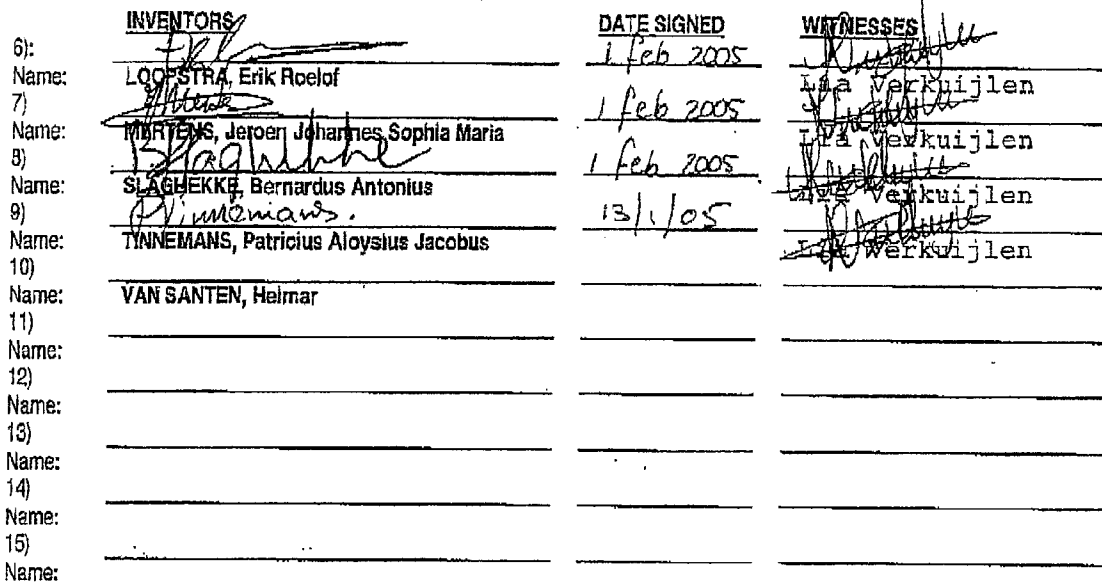 INVENTORS DATE SIGNED WITNESSES
6): 1 feb 2005
Name: LOOPSTRA, Erik Roelof Lia Verkuijlen
7) 1 feb 2005
Name: MERTENS, Jeroen Johannes Sophia Maria Lia Verkuijlen
8) 1 feb 2005
Name: SLAGHEKKE, Bernardus Antonius Lia Verkuijlen
9) 13/1/05
Name: TINNEMANS, Patricius Aloysius Jacobus Lia Verkuijlen
10)
Name: VAN SANTEN, Helmar
11)
Name:
12)
Name:
13)
Name:
14)
Name:
15)
Name: